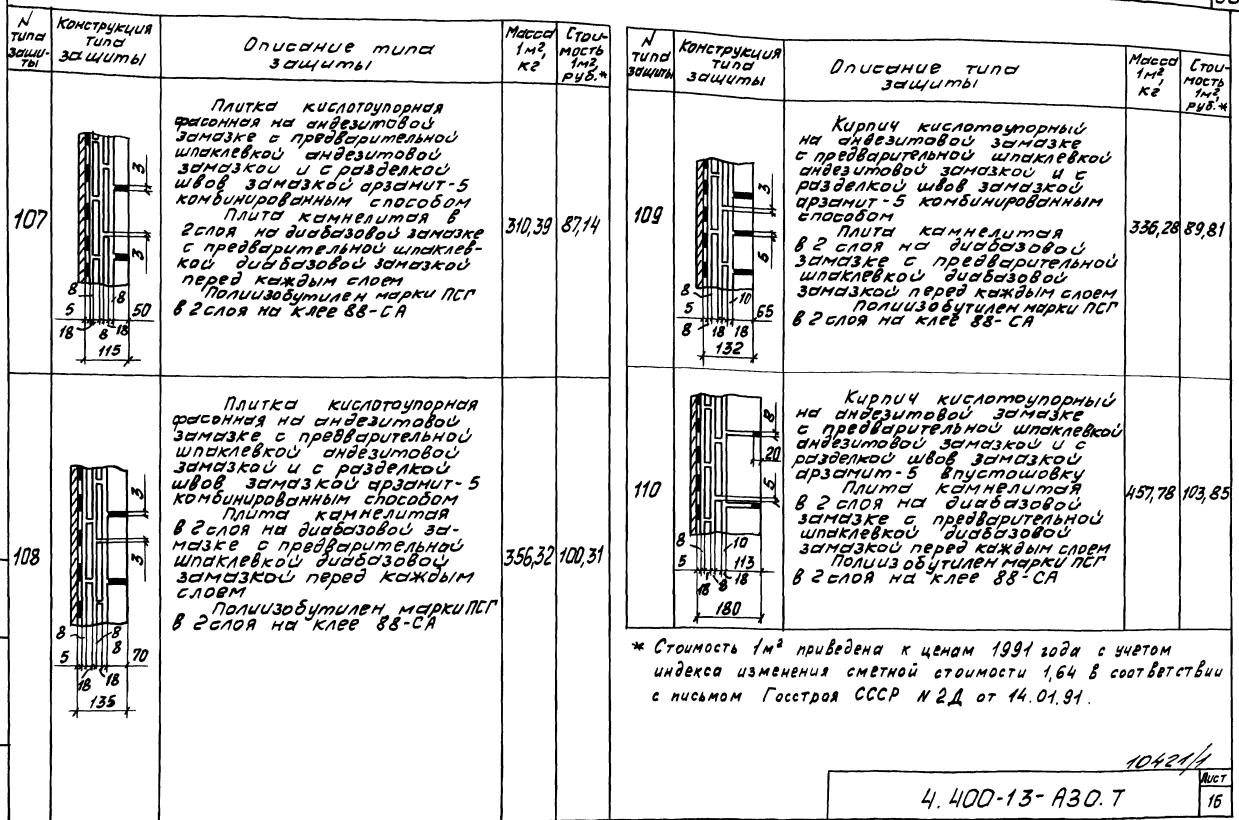 N типа защи-ты
Конструкция типа защиты
Описание типа защиты
Масса 1м², кг
Стои-мость 1м², руб.*
107
Плитка кислотоупорная
фасонная на андезитовой
замазке с предварительной
шпаклевкой андезитовой
замазкой и с разделкой
швов замазкой арзамит-5
комбинированным способом
Плита камнелитая в
2 слоя на диабазовой замазке
с предварительной шпаклев-
кой диабазовой замазкой
перед каждым слоем
Полиизобутилен марки ПСГ
в 2 слоя на клее 88-СА
310,39
87,14
3
3
8
8
5
50
18
8
18
115
108
Плитка кислотоупорная
фасонная на андезитовой
замазке с предварительной
шпаклевкой андезитовой
замазкой и с разделкой
швов замазкой арзамит-5
комбинированным способом
Плита камнелитая
в 2 слоя на диабазовой за-
мазке с предварительной
шпаклевкой диабазовой
замазкой перед каждым
слоем
Полиизобутилен марки ПСГ
в 2 слоя на клее 88-СА
356,32
100,31
3
3
8
8
8
5
70
18
18
135
N типа защиты
Конструкция типа защиты
Описание типа защиты
Масса 1м², кг
Стои-мость 1м², руб.*
109
Кирпич кислотоупорный
на андезитовой замазке
с предварительной шпаклевкой
андезитовой замазкой и с
разделкой швов замазкой
арзамит-5 комбинированным
способом
Плита камнелитая
в 2 слоя на диабазовой
замазке с предварительной
шпаклевкой диабазовой
замазкой перед каждым слоем
Полиизобутилен марки ПСГ
в 2 слоя на клее 88-СА
336,28
89,81
3
5
8
10
5
65
8
18
18
132
110
Кирпич кислотоупорный
на андезитовой замазке
с предварительной шпаклевкой
андезитовой замазкой и с
разделкой швов замазкой
арзамит-5 впустошовку
Плита камнелитая
в 2 слоя на диабазовой
замазке с предварительной
шпаклевкой диабазовой
замазкой перед каждым слоем
Полиизобутилен марки ПСГ
в 2 слоя на клее 88-СА
457,78
103,85
8
20
5
8
10
5
113
18
8
18
180
* Стоимость 1м² приведена к ценам 1991 года с учетом
индекса изменения сметной стоимости 1,64 в соответствии
с письмом Госстроя СССР N 2Д от 14.01.91.
10421/1
4.400-13-АЗО.Т
Лист
16